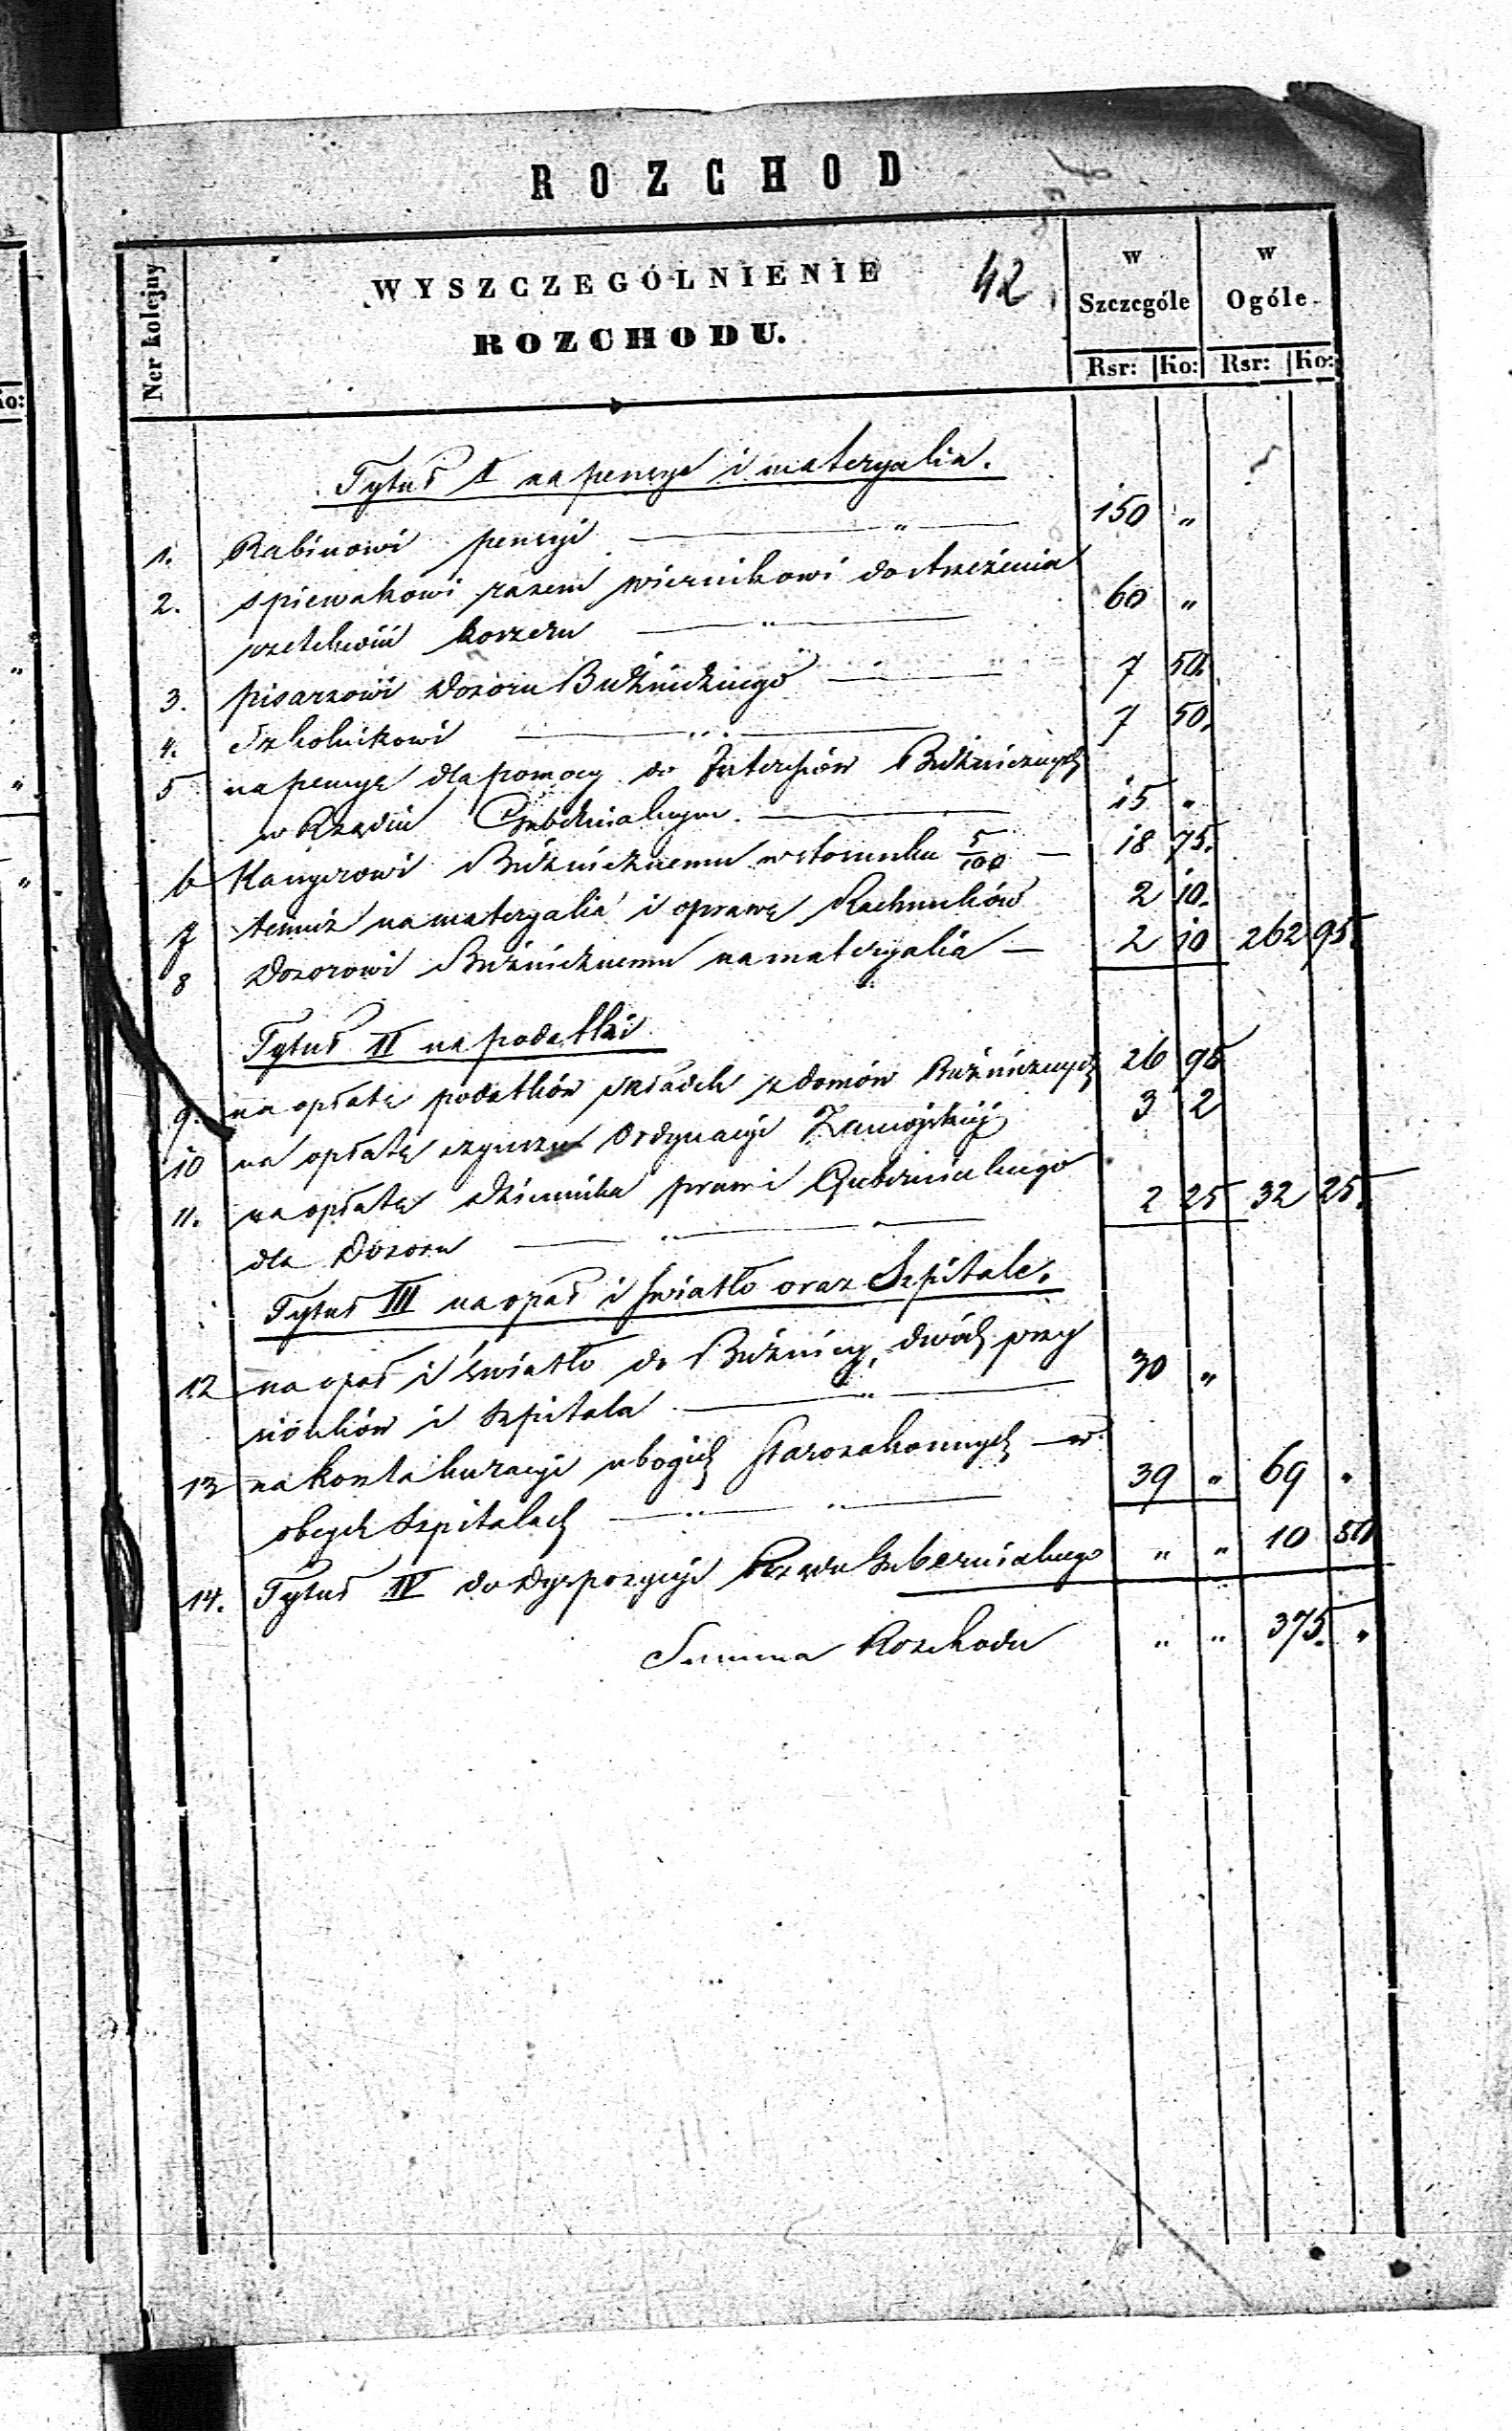 ROZCHOD
Ner kolejny
WYSZCZEGÓLNIENIE
ROZCHODU.
42
w Szczególe
w Ogóle
Rsr: Ko: Rsr: Ko:
Tytuł I na pensye i materyalia.
1. Rabinowi pensyi " 150 "
2. Spiewakowi razem wiernikowi dostrzeżenia
koszeru " 60 "
3. pisarzowi Dozoru Bużniczego 7 50.
4. Szkolnikowi 7 50.
5 na pensye dla pomocy do Interessów Bużnicznych
w Rządzie Gubernialnym. 15 "
6 Kassyerowi Bużnicznemu w stosunku 5/100 18 75.
7 temuż na materyalia i oprawę Rachunków 2 10.
8 Dozorowi Bużnicznemu na materyalia 2 10 262 95.
Tytuł II na podatki
9. na opłatę podatków składek z domów Bużnicznych 26 98
10 na opłatę czynszu Ordynacyi Zamojskiej 3 2
11. na opłatę dziennika praw i Gubernialnego
dla Dozoru " 2 25 32 25.
Tytuł III na opał i światło oraz Szpitale.
12 na opał i światło do Bużnicy, dwóch przy
siónków i Szpitala " 30 "
13 na koszta kuracyi ubogich starozakonnych w
obcych Szpitalach " " 39 " 69 "
14. Tytuł IV do dyspozycyi Rządu Gubernialnego " " 10 80
Summa Rozchodu " " 375. "